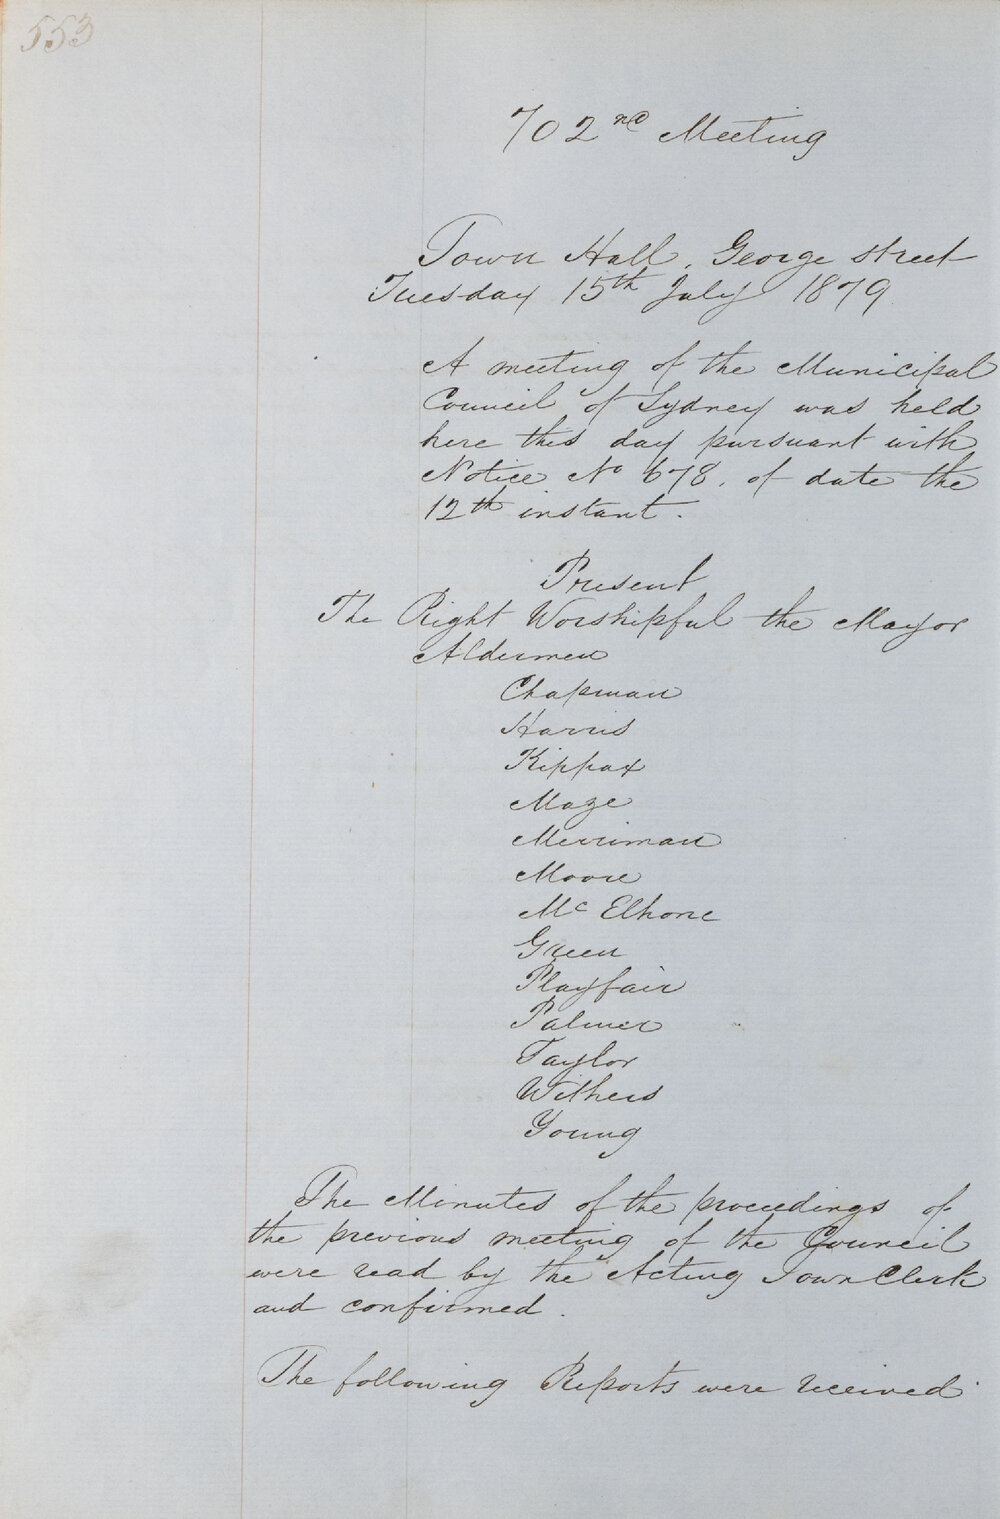 553
702nd Meeting
Town Hall, George street
Tuesday 15th July 1879
A meeting of the Municipal
Council of Sydney was held
here this day pursuant with
Notice No 678, of date the
12th instant.
Present
The Right Worshipful the Mayor
Aldermen
Chapman
Harris
Kippax
Maze
Merriman
Moore
Mc Elhone
Green
Playfair
Palmer
Taylor
Withers
Young
The Minutes of the proceedings of
the previous meeting of the Council
were read by the Acting Town Clerk
and confirmed.
The following Reports were received